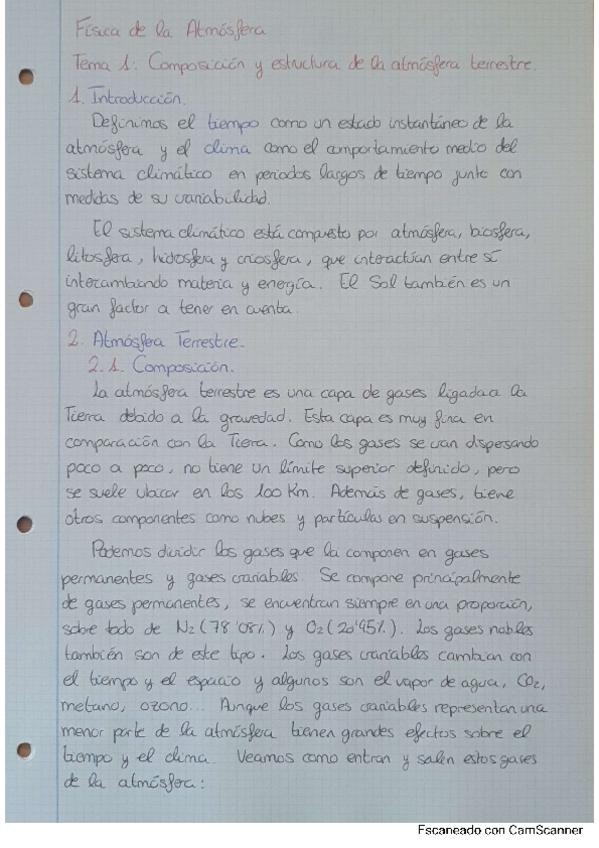 Física de la Atmósfera
Tema 1: Composición y estructura de la atmósfera terrestre.
1. Introducción.
Definimos el tiempo como un estado instantáneo de la
atmósfera y el clima como el comportamiento medio del
sistema climático en periodos largos de tiempo junto con
medidas de su variabilidad.
El sistema climático está compuesto por atmósfera, biosfera,
litosfera, hidrosfera y criosfera, que interactúan entre sí
intercambiando materia y energía. El Sol también es un
gran factor a tener en cuenta.
2. Atmósfera Terrestre.
2.1. Composición.
La atmósfera terrestre es una capa de gases ligada a la
Tierra debido a la gravedad. Esta capa es muy fina en
comparación con la Tierra. Como los gases se van dispersando
poco a poco, no tiene un límite superior definido, pero
se suele ubicar en los 100 Km. Además de gases, tiene
otros componentes como nubes y partículas en suspensión.
Podemos dividir los gases que la componen en gases
permanentes y gases variables. Se compone principalmente
de gases permanentes, se encuentran siempre en una proporción,
sobre todo de N₂ (78'08%) y O₂ (20'95%). Los gases nobles
también son de este tipo. Los gases variables cambian con
el tiempo y el espacio y algunos son el vapor de agua, CO₂,
metano, ozono... Aunque los gases variables representan una
menor parte de la atmósfera tienen grandes efectos sobre el
tiempo y el clima. Veamos como entran y salen estos gases
de la atmósfera:
Escaneado con CamScanner